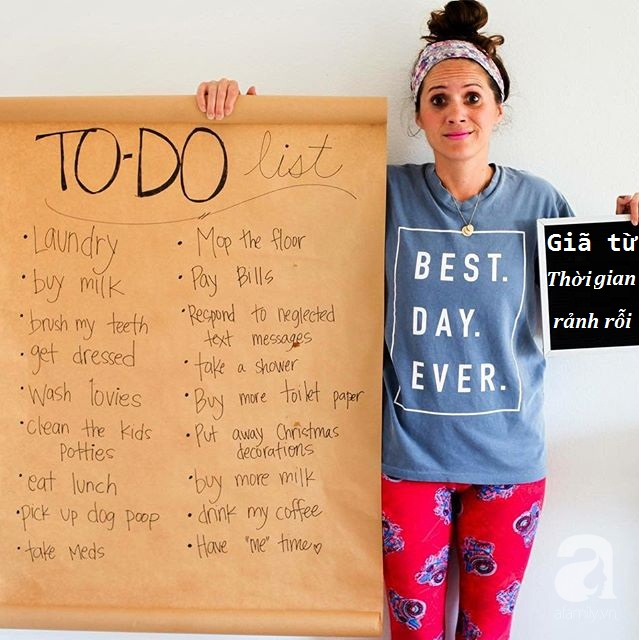 TO-DO list
• Laundry
• buy milk
• brush my teeth
• get dressed
• Wash lovies
• clean the kids
potties
• eat lunch
• pick up dog poop
• take Meds
• Mop the floor
• Pay Bills
• Respond to neglected
text messages
• take a shower
• Buy more toilet paper
• Put away Christmas
decorations
• buy more milk
• drink my coffee
• Have "me" time♡
BEST.
DAY.
EVER.
Giã từ
Thời gian
rảnh rỗi
a
afamily.vn